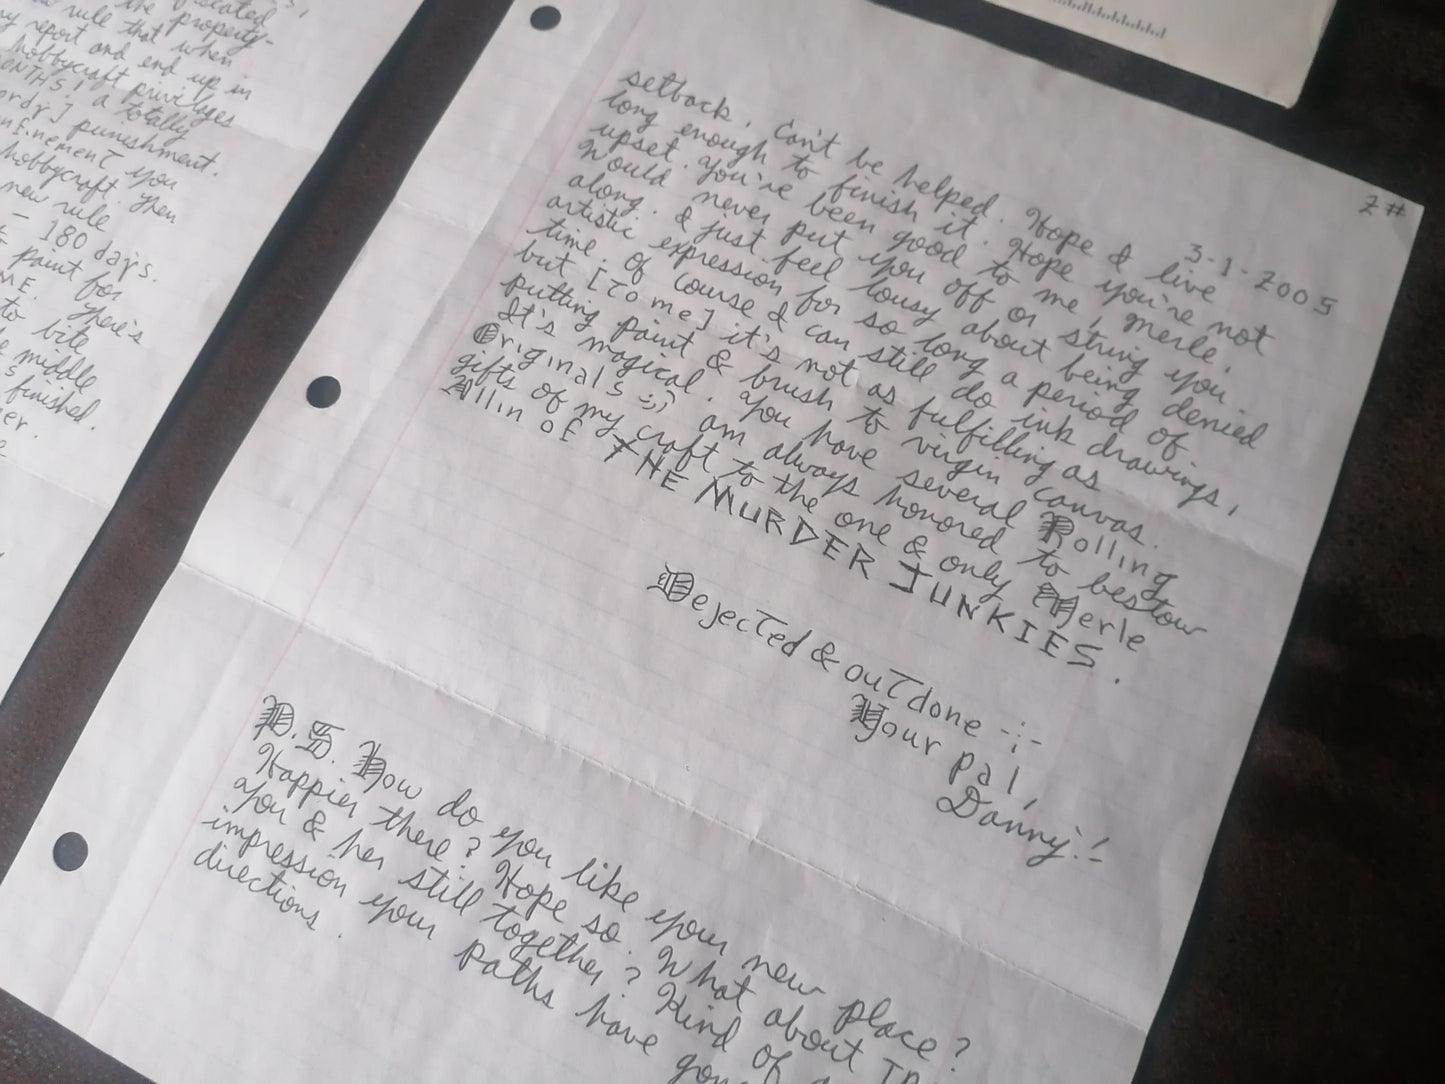 the property-
rule that when
my report and end up in
hobbycraft privileges
MONTHS! a totally
punishment.
you
hobbycraft. Then
new rule
- 180 days.
paint for
There's
to bite
middle
finished.
2#
3-1-2005
setback. Can't be helped. Hope I live
long enough to finish it. Hope you're not
upset. You've been good to me, Merle.
Would never put you off or string you
along. I just feel lousy about being denied
artistic expression for so long a period of
time. Of course I can still do ink drawings,
but [to me] it's not as fulfilling as
putting paint & brush to virgin canvas.
It's magical. You have several Rolling
Originals :;) am always honored to bestow
gifts of my craft to the one & only Merle
Allin of THE MURDER JUNKIES.
Dejected & outdone -:-
Your pal,
Danny!-
P.S. How do you like your new place?
Happier there? Hope so. What about
you & her still together? Kind of
impression your paths have
directions.